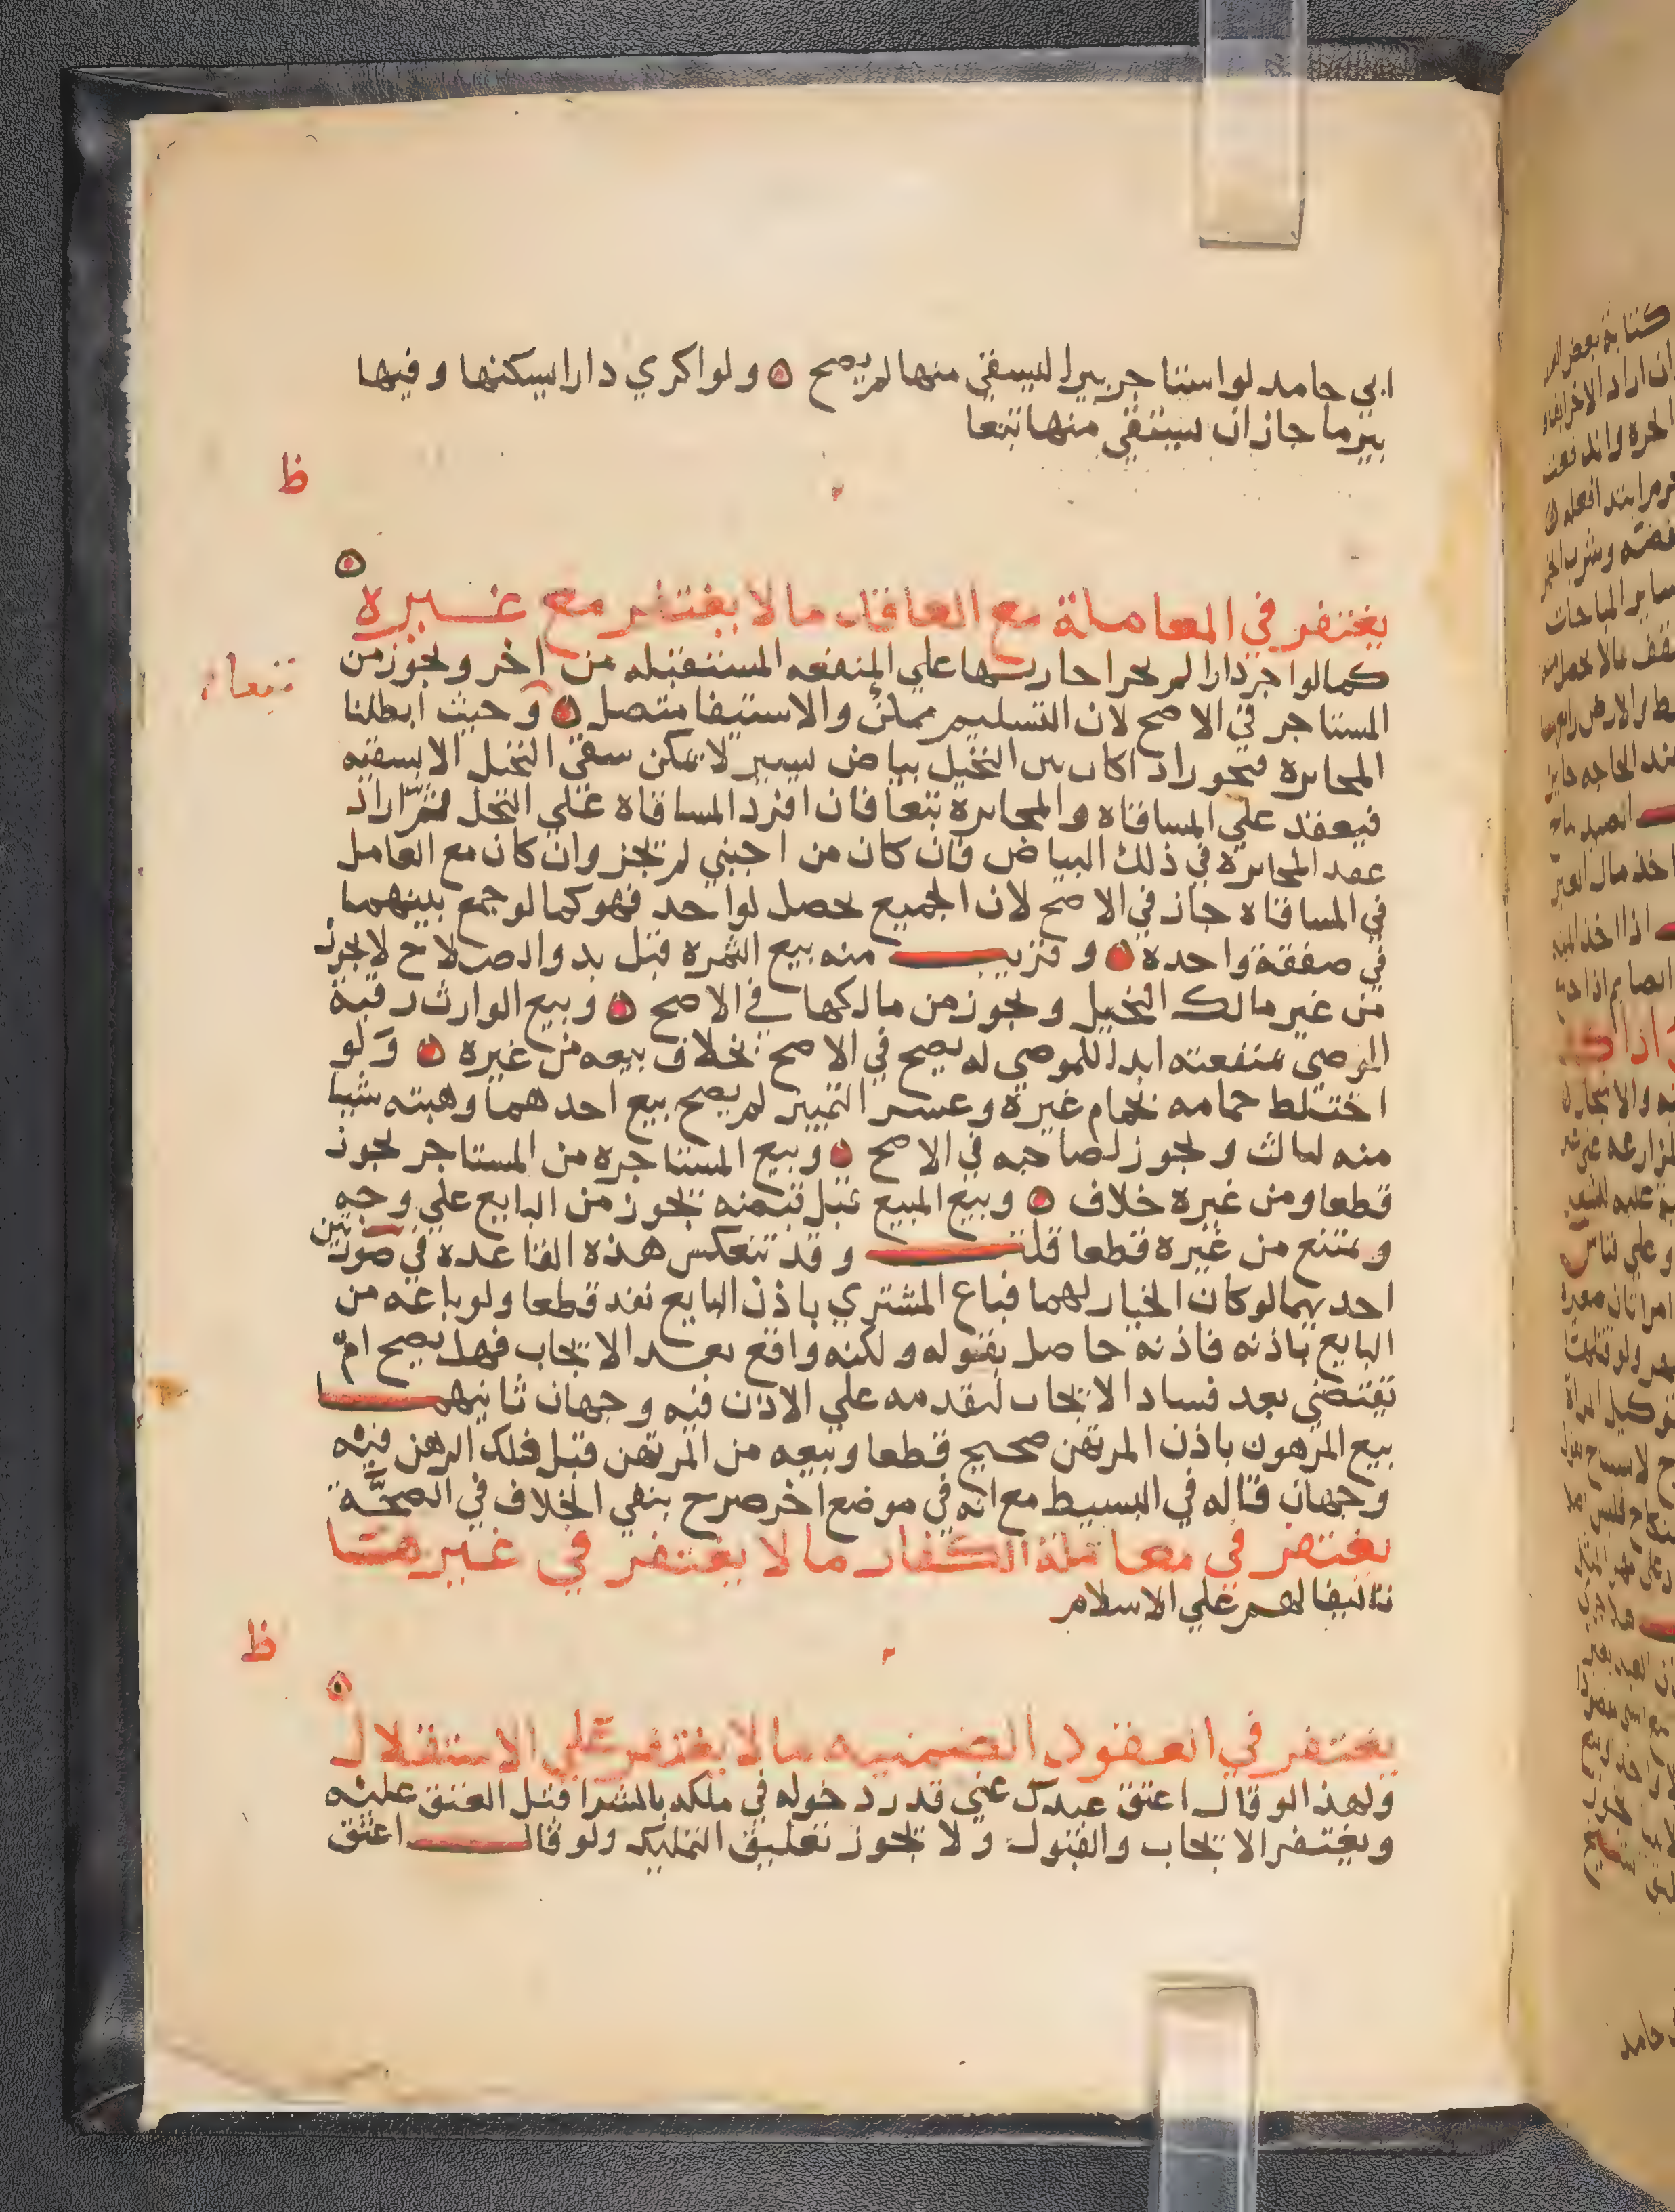 ابي حامد لو استاجر بيرا ليستقي منها لم يصح ۞ ولو اكري دارا ليسكنها وفيها
بير ما جاز ان يستقي منها تبعا
ظ
يغتفر في المعاملة مع العاقد ما لا يغتفر مع غيره
كما لو اجر دارا لم يجز اجارتها علي المنفعه المستقبله من اخر ويجوز من
تبعا
المستاجر في الاصح لان التسليم ممكن والاستيفا متصل ۞ وحيث ابطلنا
المخابره فتجوز اذا كان بين النخيل بياض يسير لا يمكن سقي النخل الا بسقيه
فيعقد علي المساقاه والمخابرة تبعا فان افرد المساقاة علي النخل ثم اراد
عقد المخابرة في ذلك البياض فان كان من اجنبي لم يجز وان كان مع العامل
في المساقاه جاز في الاصح لان الجميع يحصل لواحد فهو كما لو جمع بينهما
في صفقة واحدة ۞ وقريب منه بيع الثمره قبل بدو الصلاح لا يجوز
من غير مالك النخيل ويجوز من مالكها في الاصح ۞ وبيع الوارث رقبة
الموصي بمنفعته ابدا للموصي له يصح في الاصح بخلاف بيعه من غيره ۞ ولو
اختلط حمامه بحمام غيره وعسر التمييز لم يصح بيع احدهما وهبته شيا
منه لثالث ويجوز لصاحبه في الاصح ۞ وبيع المستاجرة من المستاجر يجوز
قطعا ومن غيره خلاف ۞ وبيع المبيع قبل قبضه يجوز من البايع علي وجه
ويمتنع من غيره قطعا قلت وقد تنعكس هذه القاعدة في صورتين
احديهما لو كان الخيار لهما فباع المشتري باذن البايع نفذ قطعا ولو باعه من
البايع باذنه فاذنه حاصل بقبوله ولكنه واقع بعد الايجاب فهل يصح ام
تقتضي بعد فساد الايجاب لتقدمه علي الاذن فيه وجهان ثانيهما
بيع المرهون باذن المرتهن صحيح قطعا وبيعه من المرتهن قبل فك الرهن فيه
وجهان قاله في البسيط مع انه في موضع اخر صرح بنفي الخلاف في الصحة
يغتفر في معاملة الكفار ما لا يغتفر في غيرها
تاليفا لهم علي الاسلام
ظ
يغتفر في العقود الضمنيه ما لا يغتفر علي الاستقلال
ولهذا لو قال اعتق عبدك عني قدر دخوله في ملكه بالشرا قبل العتق عليه
ويغتفر الايجاب والقبول ولا يجوز تعليق التمليك ولو قال اعتق